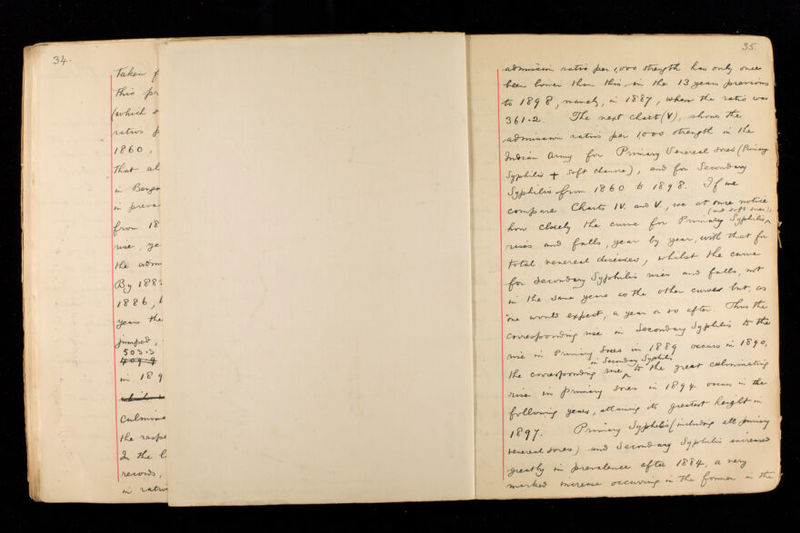 34.
Taken
this
(which
ratios
1860,
that
in
in
from 18
rise,
the adm
By 188
1886,
years the
jumped,
503.3
409.9
in 189
Culmin
the
In the
records,
in ratio
35
admission ratio per 1,000 strength has only once
been lower than this in the 13 years previous
to 1898, namely, in 1887, when the ratio was
361.2. The next chart (V), shows the
admission ratios per 1000 strength in the
Indian Army for Primary Venereal Sores (Primary
Syphilis + Soft chancre), and for Secondary
Syphilis from 1860 to 1898. If we
compare Charts IV. and V., we at once notice
(and soft sores),
how closely the curve for Primary Syphilis
rises and falls, year by year, with that for
total venereal diseases, whilst the curve
for Secondary Syphilis rises and falls, not
in the same years as the other curves but, as
one would expect, a year or so after. Thus the
corresponding rise in Secondary Syphilis to the
rise in Primary Sores in 1889 occurs in 1890,
in Secondary Syphilis
the corresponding rise to the great culminating
rise in primary sores in 1894 occurs in the
following years, attaining its greatest height in
1897. Primary Syphilis (including all primary
venereal sores) and Secondary Syphilis increased
greatly in prevalence after 1884, a very
marked increase occurring in the former in the